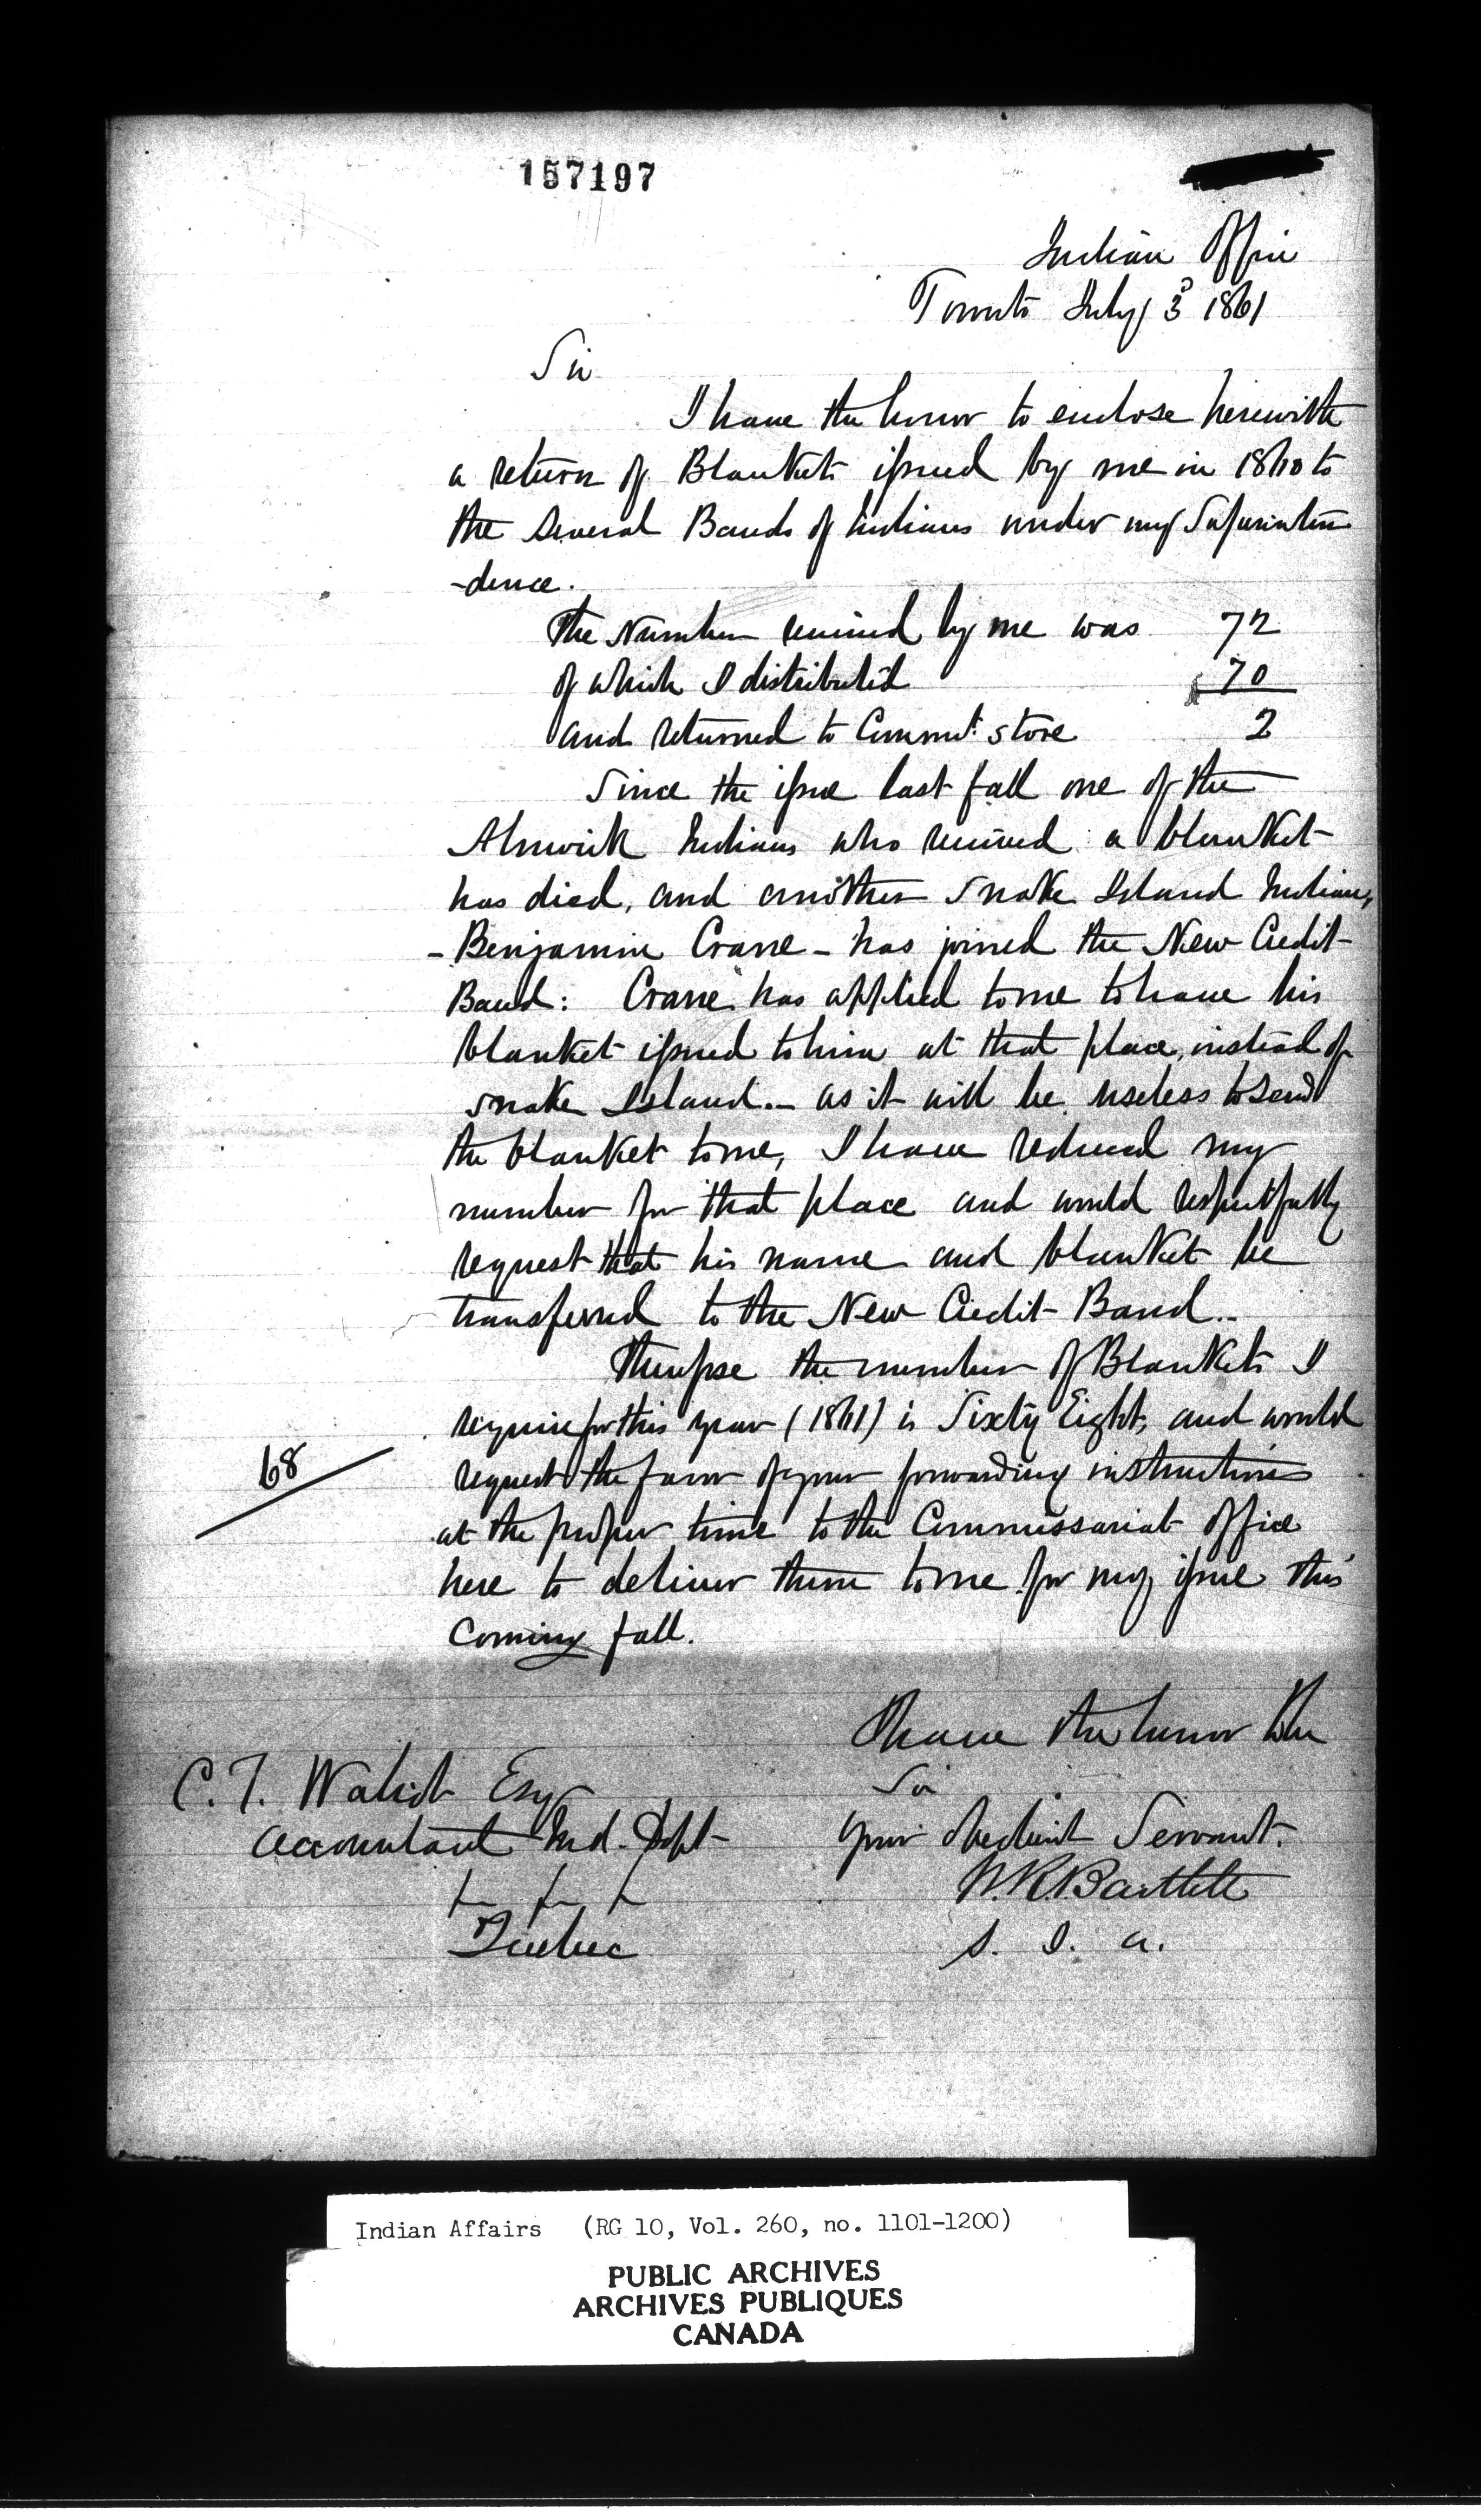 157197
Indian Office
Toronto July 3d 1861
Sir
I have the honor to enclose herewith
a return of Blankets issued by me in 1860 to
the several Bands of Indians under my Superinten
-dence.
The Number received by me was 72
of which I distributed 70
and returned to Commt. store 2
Since the issue last fall one of the
Alnwick Indians who received a blanket
has died, and another Snake Island Indian,
- Benjamin Crane - has joined the New Credit
Band: Crane has applied to me to have his
blanket issued to him at that place, instead of
Snake Island - as it will be useless to send
the blanket to me, I have reduced my
number for that place and would respectfully
request that his name and blanket be
transferred to the New Credit Band -
Therefore the number of Blankets I
require for this year (1861) is Sixty Eight, and would
68
request the favor of your forwarding instructions
at the proper time to the Commissariat office
here to deliver them to me for my issue this
coming fall.
I have the honor to be
Sir
Your obedient Servant.
W.R. Bartlett
S. I. A.
C. T. Walcot Esq
Accountant Ind. Dept
Quebec
Indian Affairs (RG 10, Vol. 260, no. 1101-1200)
PUBLIC ARCHIVES
ARCHIVES PUBLIQUES
CANADA